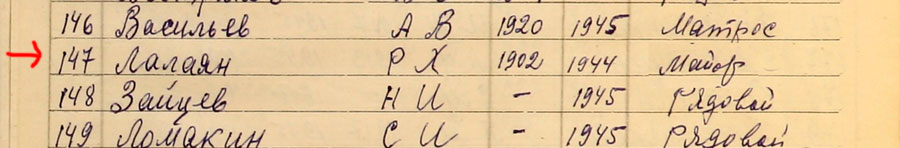 146 Васильев А В 1920 1945 Матрос
147 Лалаян Р Х 1902 1944 Майор
148 Зайцев Н И - 1945 Рядовой
149 Ломакин С И - 1945 Рядовой